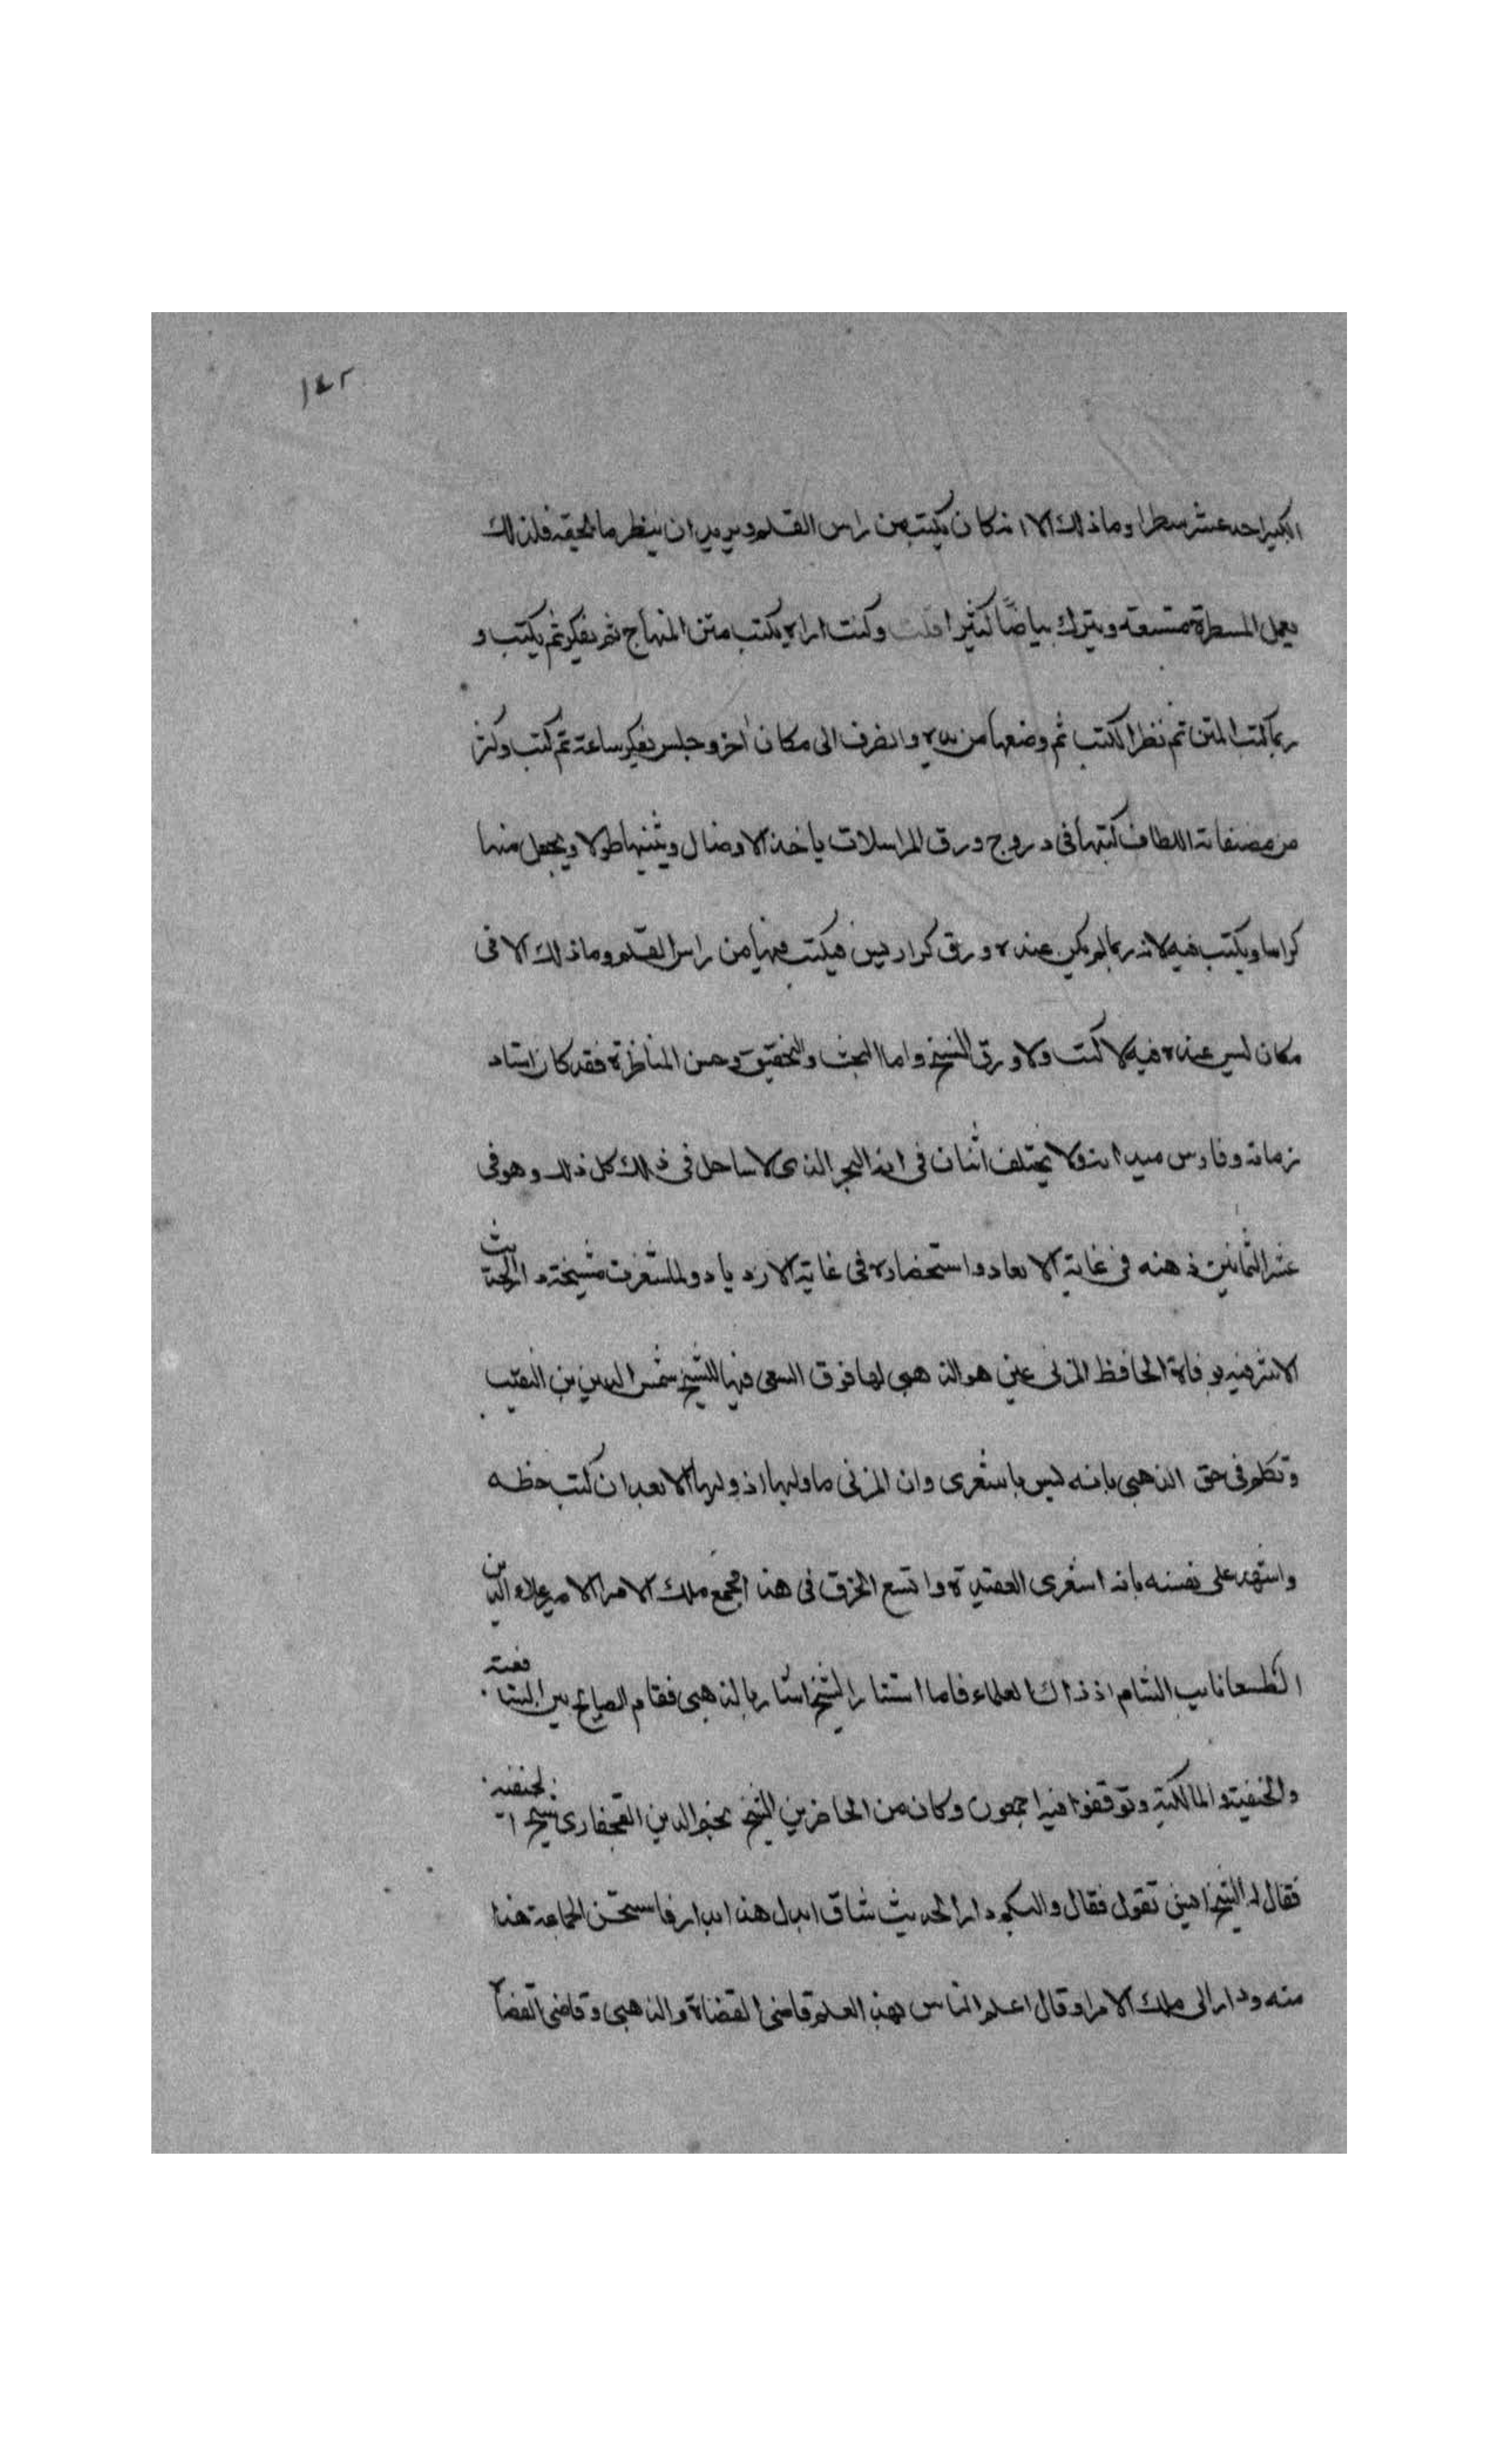 ١٤٢
الكبير احد عشر سطرا وما ذلك الا انه كان يكتب من راس القلم ويريد ان ينظر ما يلحقه فلذلك
يعمل المسطرة متسعة ويترك بياضًا كثيرا قلت وكنت اراه يكتب متن المنهاج ثم يفكر ثم يكتب و
ربما كتب المتن ثم نظر الكتب ثم وضعها من يده وانصرف الى مكان اخر وجلس يفكر ساعة ثم كتب وكثر
من مصنفاته اللطاف كتبها في دروج ورق المراسلات ياخذ الاوصال ويثنيها طولا ويجعل منها
كراسا ويكتب فيه لانه ربما لم يكن عنده ورق كراريس فيكتب فيها من راس القلم وما ذلك الا في
مكان ليس عنده فيه لا كتب ولا ورق النسخ واما البحث والتحقيق وحسن المناظرة فقد كان استاد
زمانه وفارس ميدانه ولا يختلف اثنان في انه البحر الذي لا ساحل في ذلك كل ذلك وهو في
عشر الثمانين ذهنه في غاية الاتعاد واستحضاره في غاية الازدياد ولما شغرت مشيخة دار الحديث
الاشرفيه بوفاة الحافظ المزني عين هو الذهبي لها فوق السعى فيها للشيخ شمس الدين بن النقيب
وتكلم في حق الذهبي بانه ليس باشعري وان المزني ما وليها اذ وليها الا بعد ان كتب خطه
واشهد على نفسه بانه اشعري العقيدة واتسع الخرق في هذا فجمع ملك الامرا الامير علاء الدين
الطنبغا نايب الشام اذ ذاك العلماء فلما استشار الشيخ اشار بالذهبي فقام الصايح بين الشافعية
والحنفية والمالكية وتوقفوا فيه اجمعون وكان من الحاضرين الشيخ نجم الدين القحفازى شيخ الحنفيه
فقال له الشيخ ايش تقول فقال واليكم دار الحديث شاق ابدل هذا ابدا رفاستحسن الجماعة هذا
منه ودار الى ملك الامرا وقال اعلم الناس بهذ العلم قاضي القضاة والذهبي وقاضي القضاة